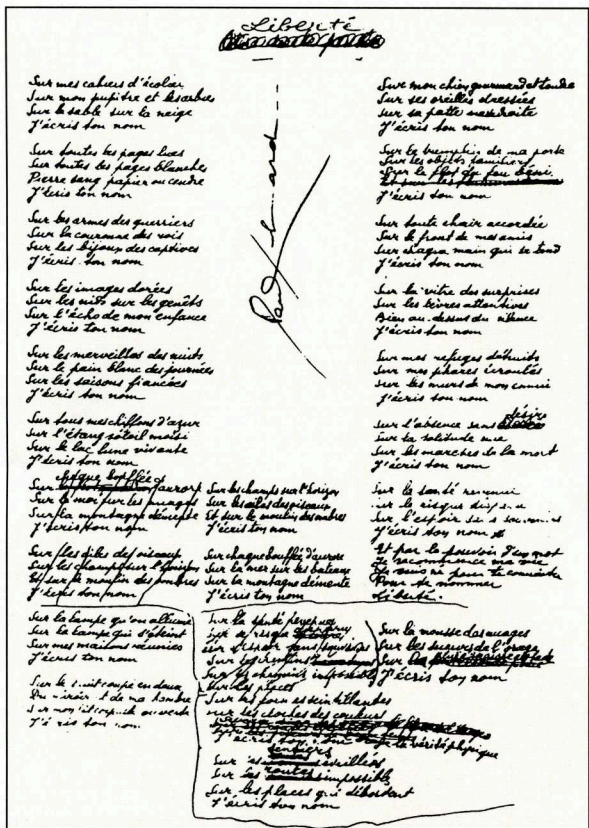 Liberté
Sur mes cahiers d'écolier
Sur mon pupitre et les arbres
Sur le sable sur la neige
J'écris ton nom
Sur toutes les pages lues
Sur toutes les pages blanches
Pierre sang papier ou cendre
J'écris ton nom
Sur les armes des guerriers
Sur la couronne des rois
Sur les bijoux des captives
J'écris ton nom
Sur les images dorées
Sur les nids sur les genêts
Sur l'écho de mon enfance
J'écris ton nom
Sur les merveilles des nuits
Sur le pain blanc des journées
Sur les saisons fiancées
J'écris ton nom
Sur tous mes chiffons d'azur
Sur l'étang soleil moisi
Sur le lac lune vivante
J'écris ton nom
chaque bouffée
Sur d'aurore
Sur la mer sur les nuages
Sur la montagne démente
J'écris ton nom
Sur les ailes des oiseaux
Sur les champs sur l'horizon
Et sur le moulin des ombres
J'écris ton nom
Sur la lampe qu'on allume
Sur la lampe qui s'éteint
Sur mes maisons réunies
J'écris ton nom
Sur le fruit coupé en deux
Du miroir et de ma chambre
Sur mon lit coquille ouverte
J'écris ton nom
Paul Eluard
Sur les champs sur l'horizon
Sur les ailes des oiseaux
Et sur le moulin des ombres
J'écris ton nom
Sur chaque bouffée d'aurore
Sur la mer sur les bateaux
Sur la montagne démente
J'écris ton nom
Sur la santé revenue
Sur le risque
Sur l'espoir sans souvenirs
Sur les
Sur les
Sur les places
Sur les formes scintillantes
Sur les cloches des couleurs
Sur la vérité physique
J'écris ton nom
sentiers
Sur les éveillés
Sur les routes impossibles
Sur les places qui débordent
J'écris ton nom
Sur la mousse des nuages
Sur les sueurs de l'orage
Sur la
J'écris ton nom
Sur mon chien gourmand et tendre
Sur ses oreilles dressées
Sur sa patte maladroite
J'écris ton nom
Sur le tremplin de ma porte
Sur les objets familiers
Sur le flot du feu béni
J'écris ton nom
Sur toute chair accordée
Sur le front de mes amis
Sur chaque main qui se tend
J'écris ton nom
Sur la vitre des surprises
Sur les lèvres attentives
Bien au-dessus du silence
J'écris ton nom
Sur mes refuges détruits
Sur mes phares écroulés
Sur les murs de mon ennui
J'écris ton nom
désire
Sur l'absence sans
Sur la solitude nue
Sur les marches de la mort
J'écris ton nom
Sur la santé revenue
Sur le risque disparu
Sur l'espoir sans souvenirs
J'écris ton nom
Et par le pouvoir d'un mot
Je recommence ma vie
Je suis né pour te connaître
Pour te nommer
Liberté.